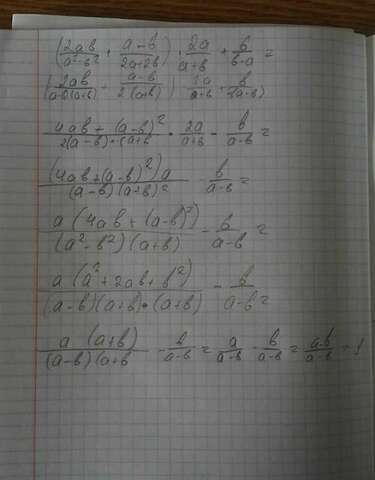 (2ab/(a²-b²) + (a-b)/(2a+2b)) · 2a/(a+b) + b/(b-a) =
(2ab/((a-b)(a+b)) + (a-b)/(2(a+b))) · 2a/(a+b) - b/(a-b)
(4ab+(a-b)²)/(2(a-b)·(a+b · 2a/(a+b) - b/(a-b) =
((4ab+(a-b)²)a)/((a-b)(a+b)² - b/(a-b) =
a(4ab+(a-b)²)/((a²-b²)(a+b)) - b/(a-b) =
a(a²+2ab+b²)/((a-b)(a+b)·(a+b)) - b/(a-b) =
a(a+b)/((a-b)(a+b - b/(a-b) = a/(a-b) - b/(a-b) = (a-b)/(a-b) = 1